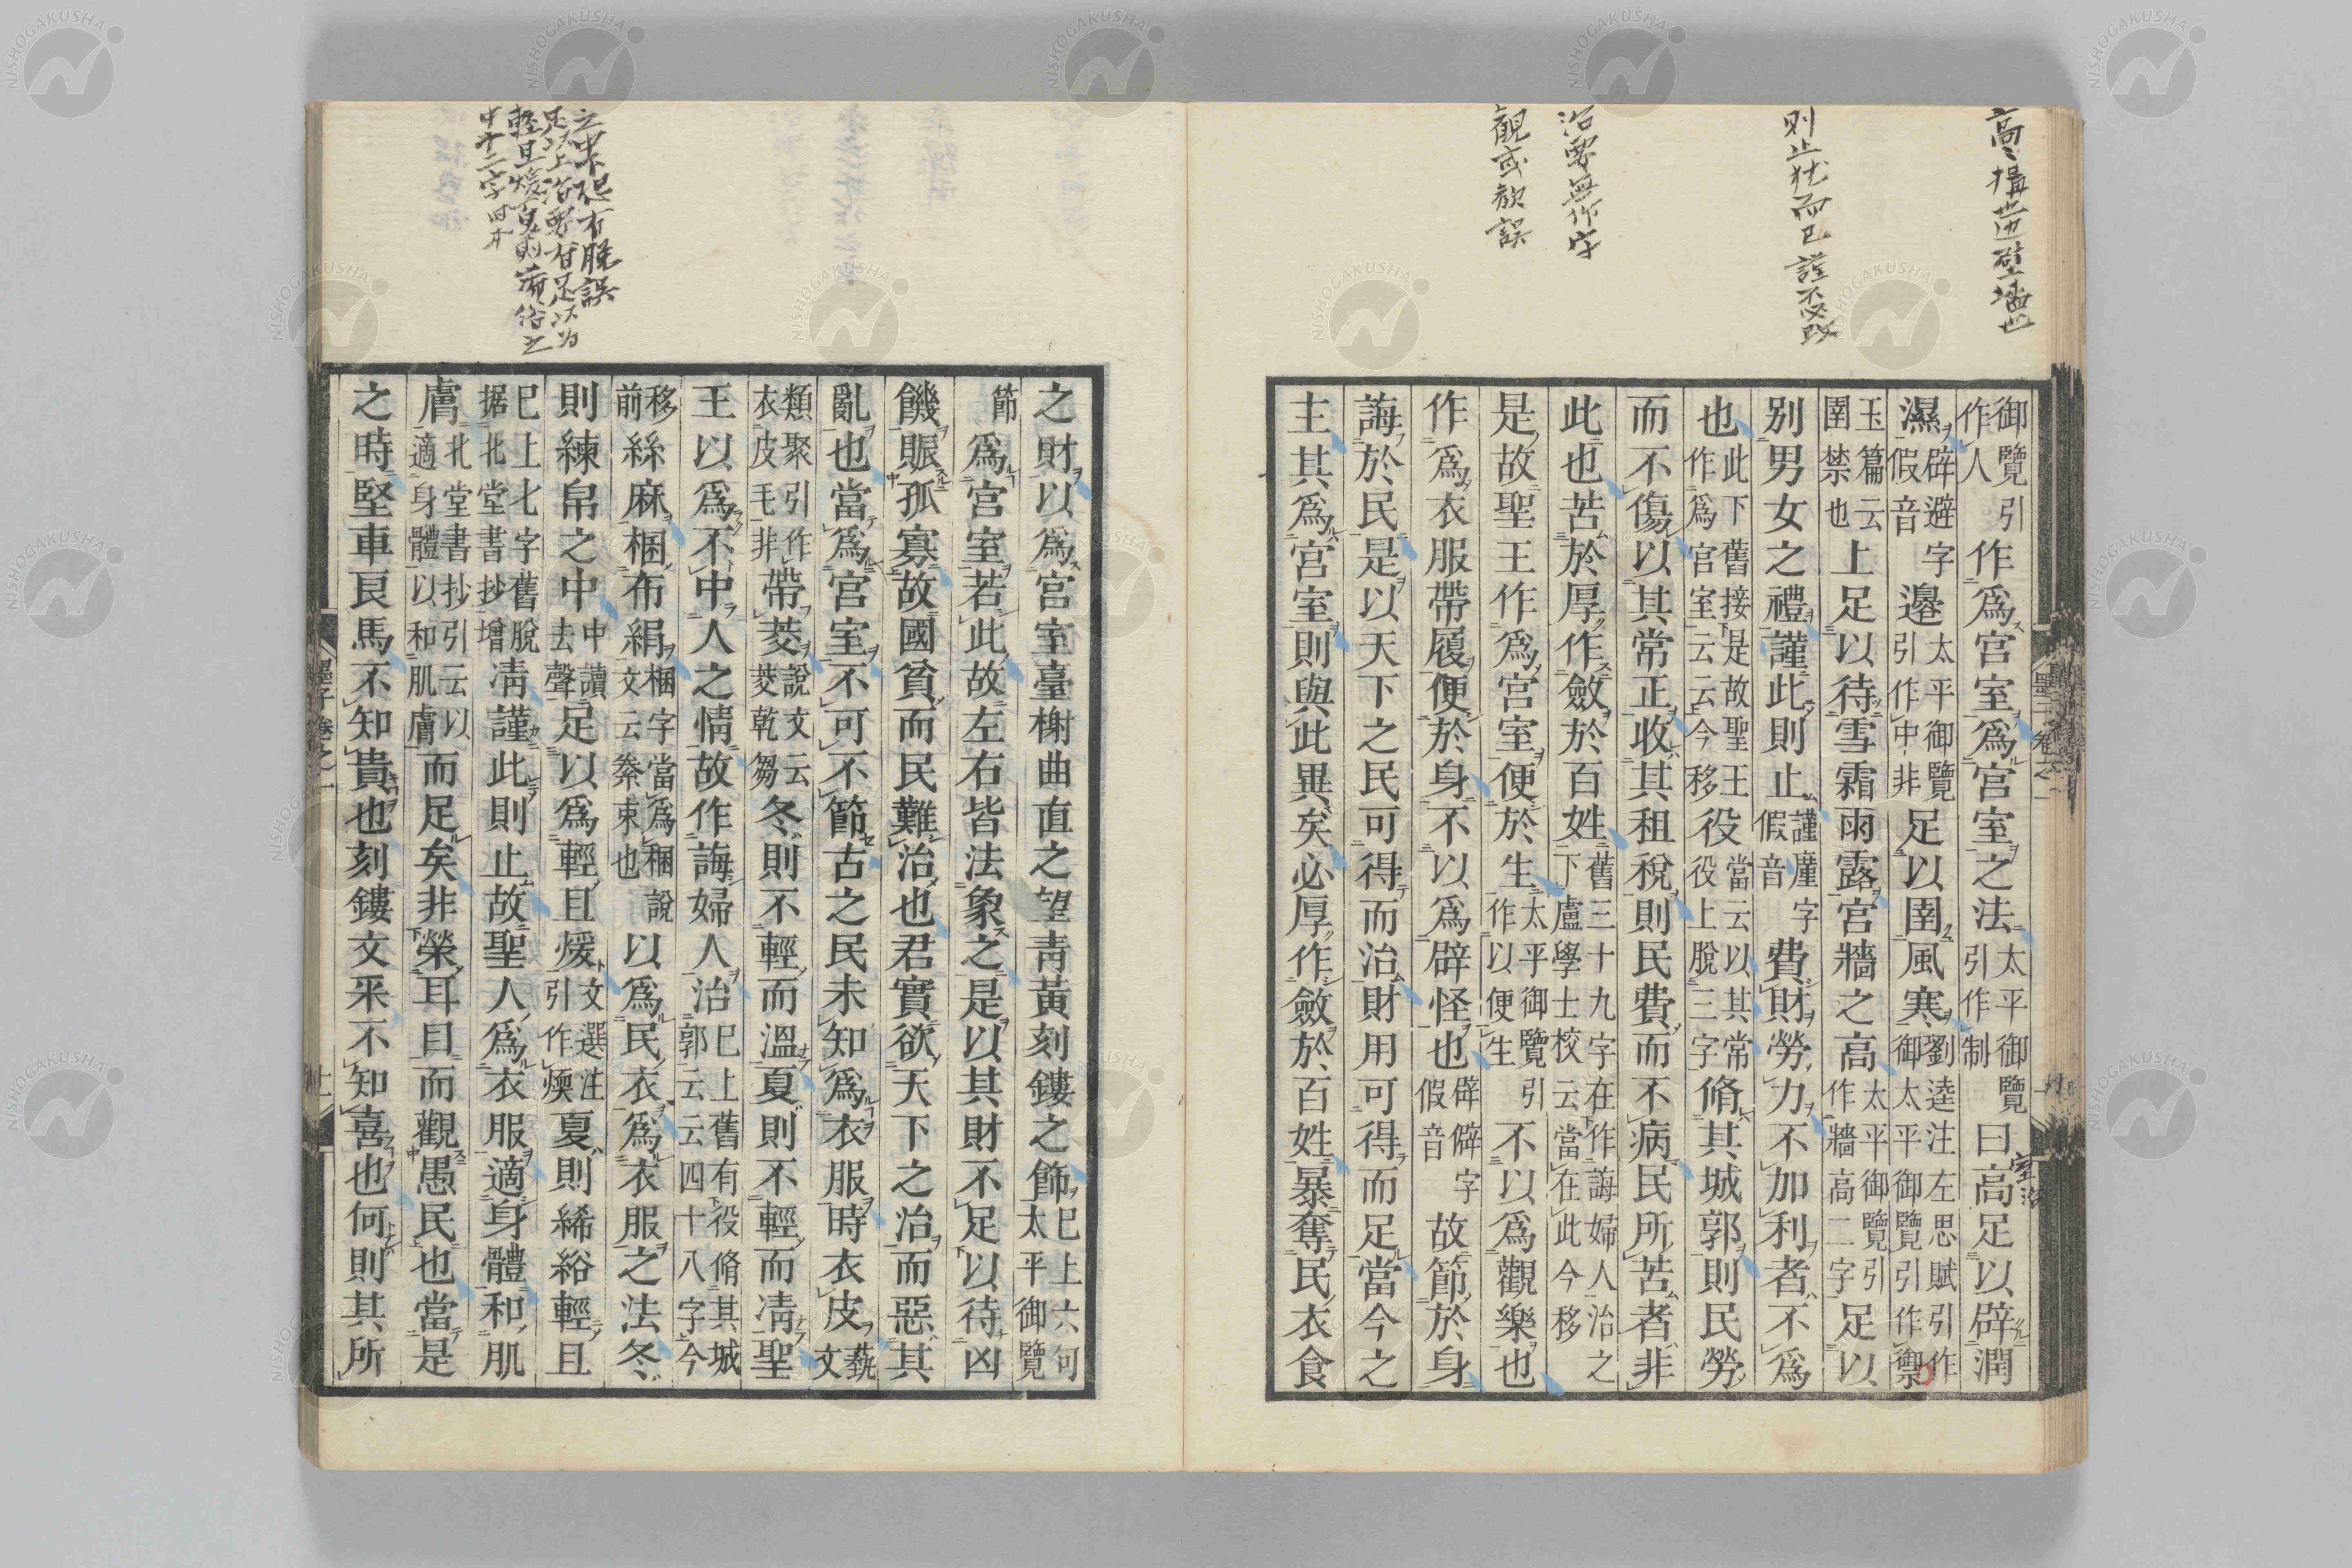 高、揖世世壁墻也
則止犹而已謹不必改
治要無作字
觀或歡誤
御覽引作人作爲宮室爲宮室之法太平御覽引作制曰高足以辟潤
濕辟避字假音邊太平御覽引作中非足以圉風寒劉逵注左思賦引作御太平御覽引作禦
玉篇云圉禁也上足以待雪霜雨露宮牆之高太平御覽引作牆高二字足以
別男女之禮謹此則止謹廑字假音費財勞力不加利者不爲
也此下舊接是故聖王作爲宮室云云今移役當云以其常役上脫三字脩其城郭則民勞
而不傷以其常正收其租稅則民費而不病民所苦者非
此也苦於厚作斂於百姓舊三十九字在作誨婦人治之下盧學士校云當在此今移
是故聖王作爲宮室便於生太平御覽引作以便生不以爲觀樂也
作爲衣服帶履便於身不以爲辟怪也辟僻字假音故節於身
誨於民是以天下之民可得而治財用可得而足當今之
主其爲宮室則與此異矣必厚作斂於百姓暴奪民衣食
墨子卷之一
之未恐有脫誤
足以上治要有足以爲
輕且煖夏則絺綌之
中十二字四字
之財以爲宮室臺榭曲直之望靑黃刻鏤之飾巳上六句太平御覽
節爲宮室若此故左右皆法象之是以其財不足以待凶
饑賑孤寡故國貧而民難治也君實欲天下之治而惡其
亂也當爲宮室不可不節古之民未知爲衣服時衣皮藝文
類聚引作衣皮毛非帶茭說文云茭乾芻冬則不輕而溫夏則不輕而凊聖
王以爲不中人之情故作誨婦人治巳上舊有役脩其城郭云云四十八字今
移前絲麻梱布絹梱字當爲稇說文云稇絭束也以爲民衣爲衣服之法冬
則練帛之中中讀去聲足以爲輕且煖文選注引作煗夏則絺綌輕且
巳上七字舊脫据北堂書抄增凊謹此則止故聖人爲衣服適身體和肌
膚北堂書抄引云以適身體以和肌膚而足矣非榮耳目而觀愚民也當是
之時堅車良馬不知貴也刻鏤文采不知喜也何則其所
墨子卷之一
十一